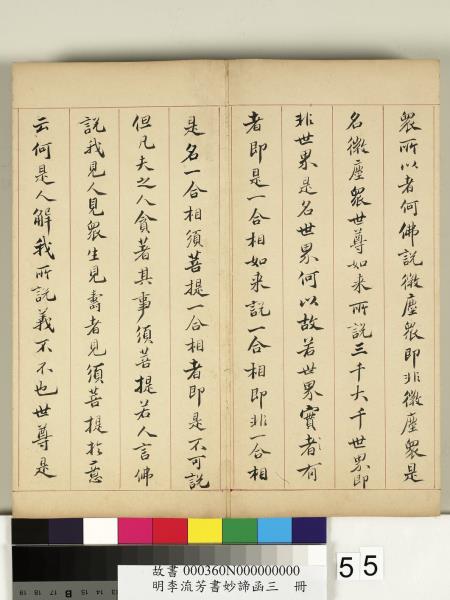 衆所以者何佛說微塵衆即非微塵衆是
名微塵衆世尊如来所說三千大千世界即
非世界是名世界何以故若世界實者有
者即是一合相如来說一合相即非一合相
是名一合相須菩提一合相者即是不可說
但凡夫之人貪著其事須菩提若人言佛
說我見人見衆生見壽者見須菩提於意
云何是人解我所說義不不也世尊是
故書 000360N000000000
明李流芳書妙諦函三 冊
55
B
19 18 17 16 15